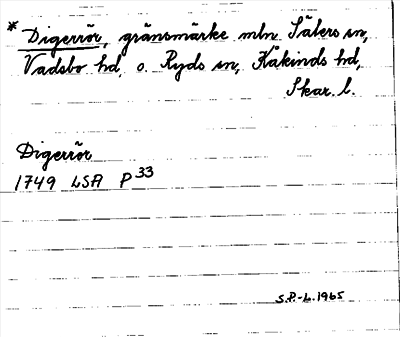 * Digerrör, gränsmärke mln Sälers sn,
Vadsbo hd, o. Ryds sn, Kåkinds hd,
Skar. l.
Digerrör
1749 LSA P 33
S.P.-L. 1965